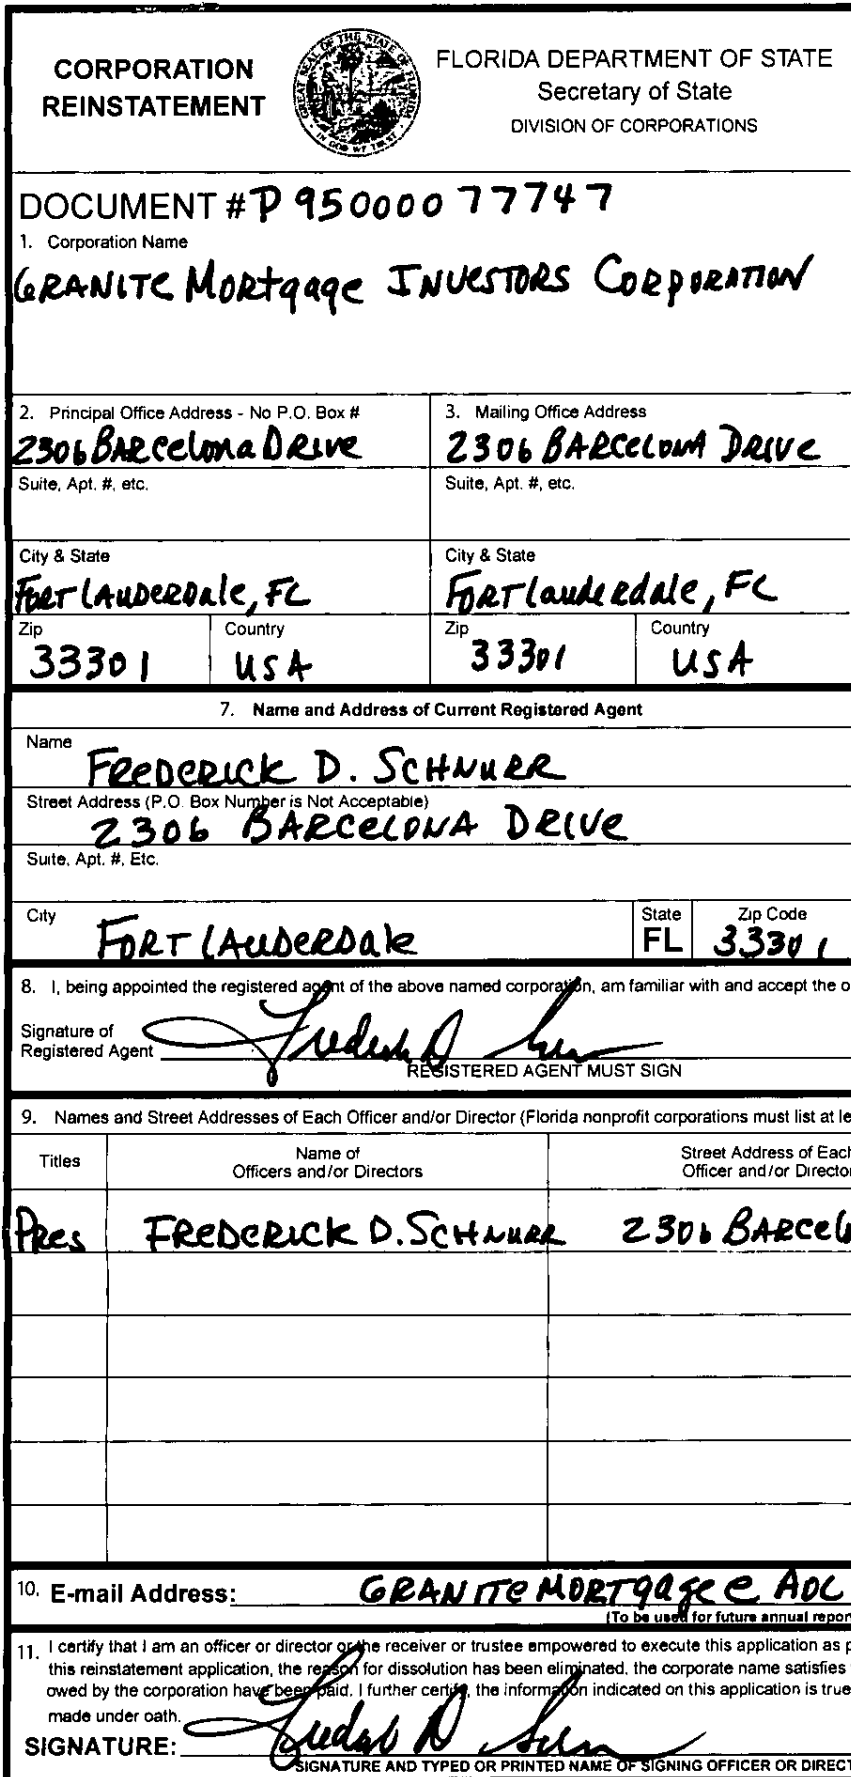 CORPORATION
REINSTATEMENT
GREAT SEAL OF THE STATE OF FLORIDA
IN GOD WE TRUST
FLORIDA DEPARTMENT OF STATE
Secretary of State
DIVISION OF CORPORATIONS
DOCUMENT # P95000077747
1. Corporation Name
GRANITE MORTgage INVESTORS CORPORATION
2. Principal Office Address - No P.O. Box #
2306 BARCelona DRIVE
Suite, Apt. #, etc.
City & State
FORT LAUDERDALE, FL
Zip
33301
Country
USA
3. Mailing Office Address
2306 BARCELONA DRIVE
Suite, Apt. #, etc.
City & State
FORT Lauderdale, FL
Zip
33301
Country
USA
7. Name and Address of Current Registered Agent
Name
FREDERICK D. SCHNURR
Street Address (P.O. Box Number is Not Acceptable)
2306 BARCELONA DRIVE
Suite, Apt. #, Etc.
City
FORT LAUDERDALE
State
FL
Zip Code
33301
8. I, being appointed the registered agent of the above named corporation, am familiar with and accept the o
Signature of
Registered Agent
REGISTERED AGENT MUST SIGN
9. Names and Street Addresses of Each Officer and/or Director (Florida nonprofit corporations must list at le
Titles
Name of
Officers and/or Directors
Street Address of Each
Officer and/or Director
Pres FREDERICK D. SCHNURR 2306 BARCEL
10. E-mail Address: GRANITEMORTgage@AOL
(To be used for future annual repor
11. I certify that I am an officer or director or the receiver or trustee empowered to execute this application as p
this reinstatement application, the reason for dissolution has been eliminated, the corporate name satisfies
owed by the corporation have been paid. I further certify, the information indicated on this application is true
made under oath.
SIGNATURE:
SIGNATURE AND TYPED OR PRINTED NAME OF SIGNING OFFICER OR DIRECT